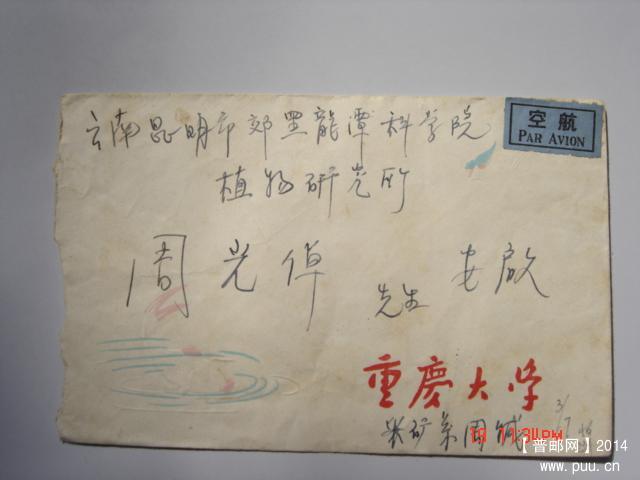 云南昆明市郊黑龍潭科学院
空航
PAR AVION
植物研究所
周光倬 先生 安啟
重慶大学
采矿系周缄
3/7
11:34PM
【普邮网】2014
www.puu.cn